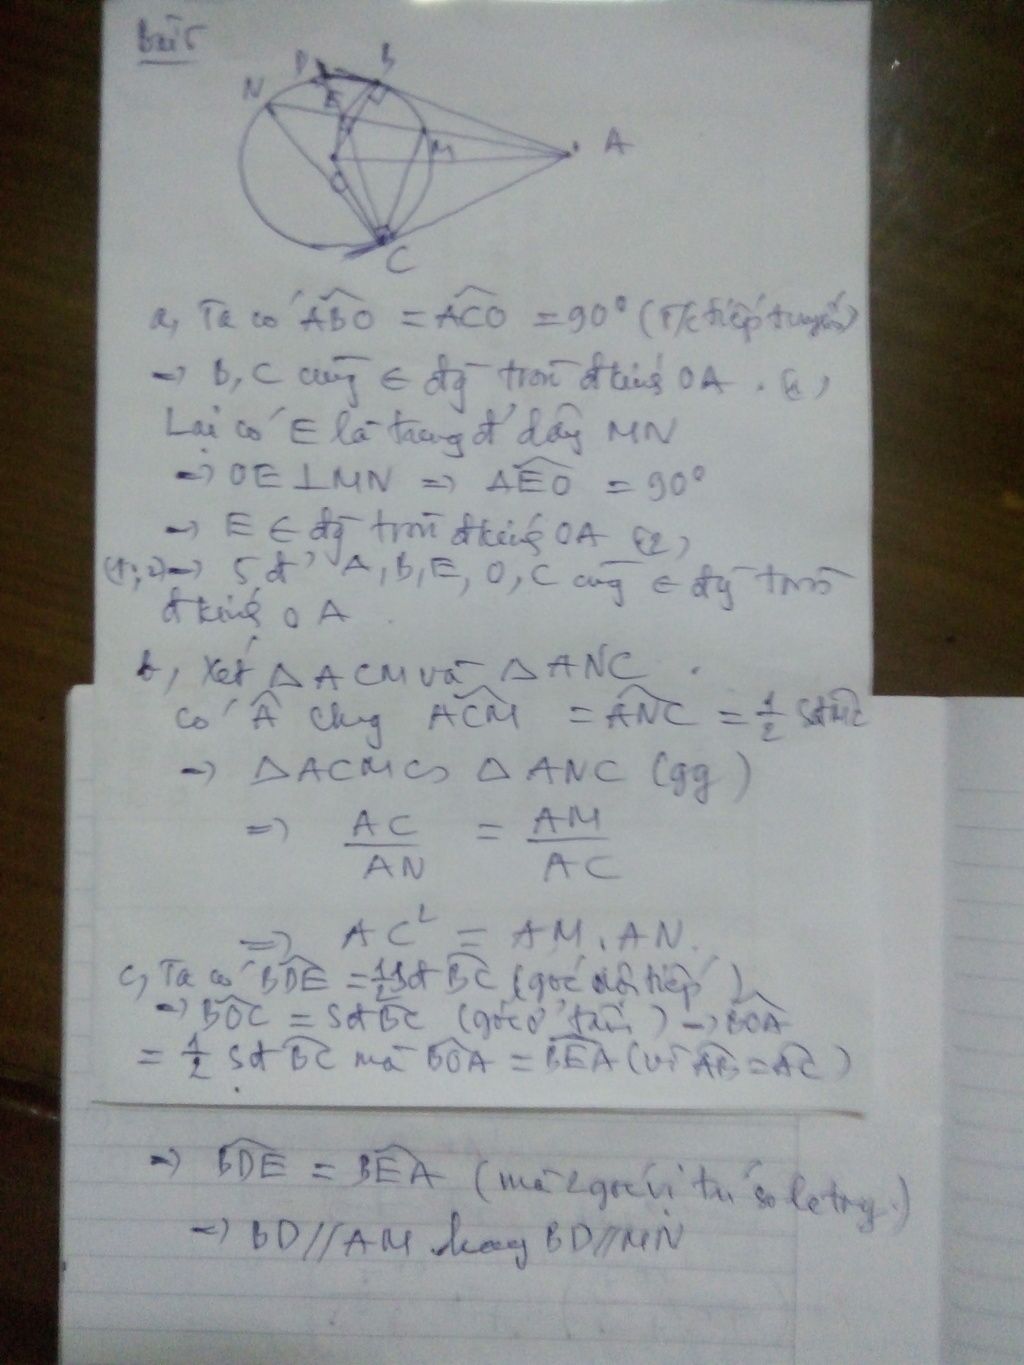 Bài 5
N D B
E
M A
O
C
a, Ta có ABO = ACO = 90° (T/c tiếp tuyến)
→ B, C cùng ∈ đg tròn đkính OA . (1)
Lại có E là trung đ' dây MN
→ OE ⊥ MN → AEO = 90°
→ E ∈ đg tròn đkính OA (2)
(1;2) → 5 đ' A, B, E, O, C cùng ∈ đg tròn
đkính OA .
b, Xét △ ACM và △ ANC .
có  chg ACM = ANC = 1/2 Sđ MC
→ △ ACM ∽ △ ANC (gg)
⇒ AC/AN = AM/AC
⇒ AC² = AM . AN.
c, Ta có BDE = 1/2 Sđ BC (góc nội tiếp)
→ BOC = Sđ BC (góc ở tâm) → BOA
= 1/2 Sđ BC mà BOA = BEA (vì AB = AC)
→ BDE = BEA (mà 2 góc vị trí so le trg.)
→ BD // AM hay BD // MN